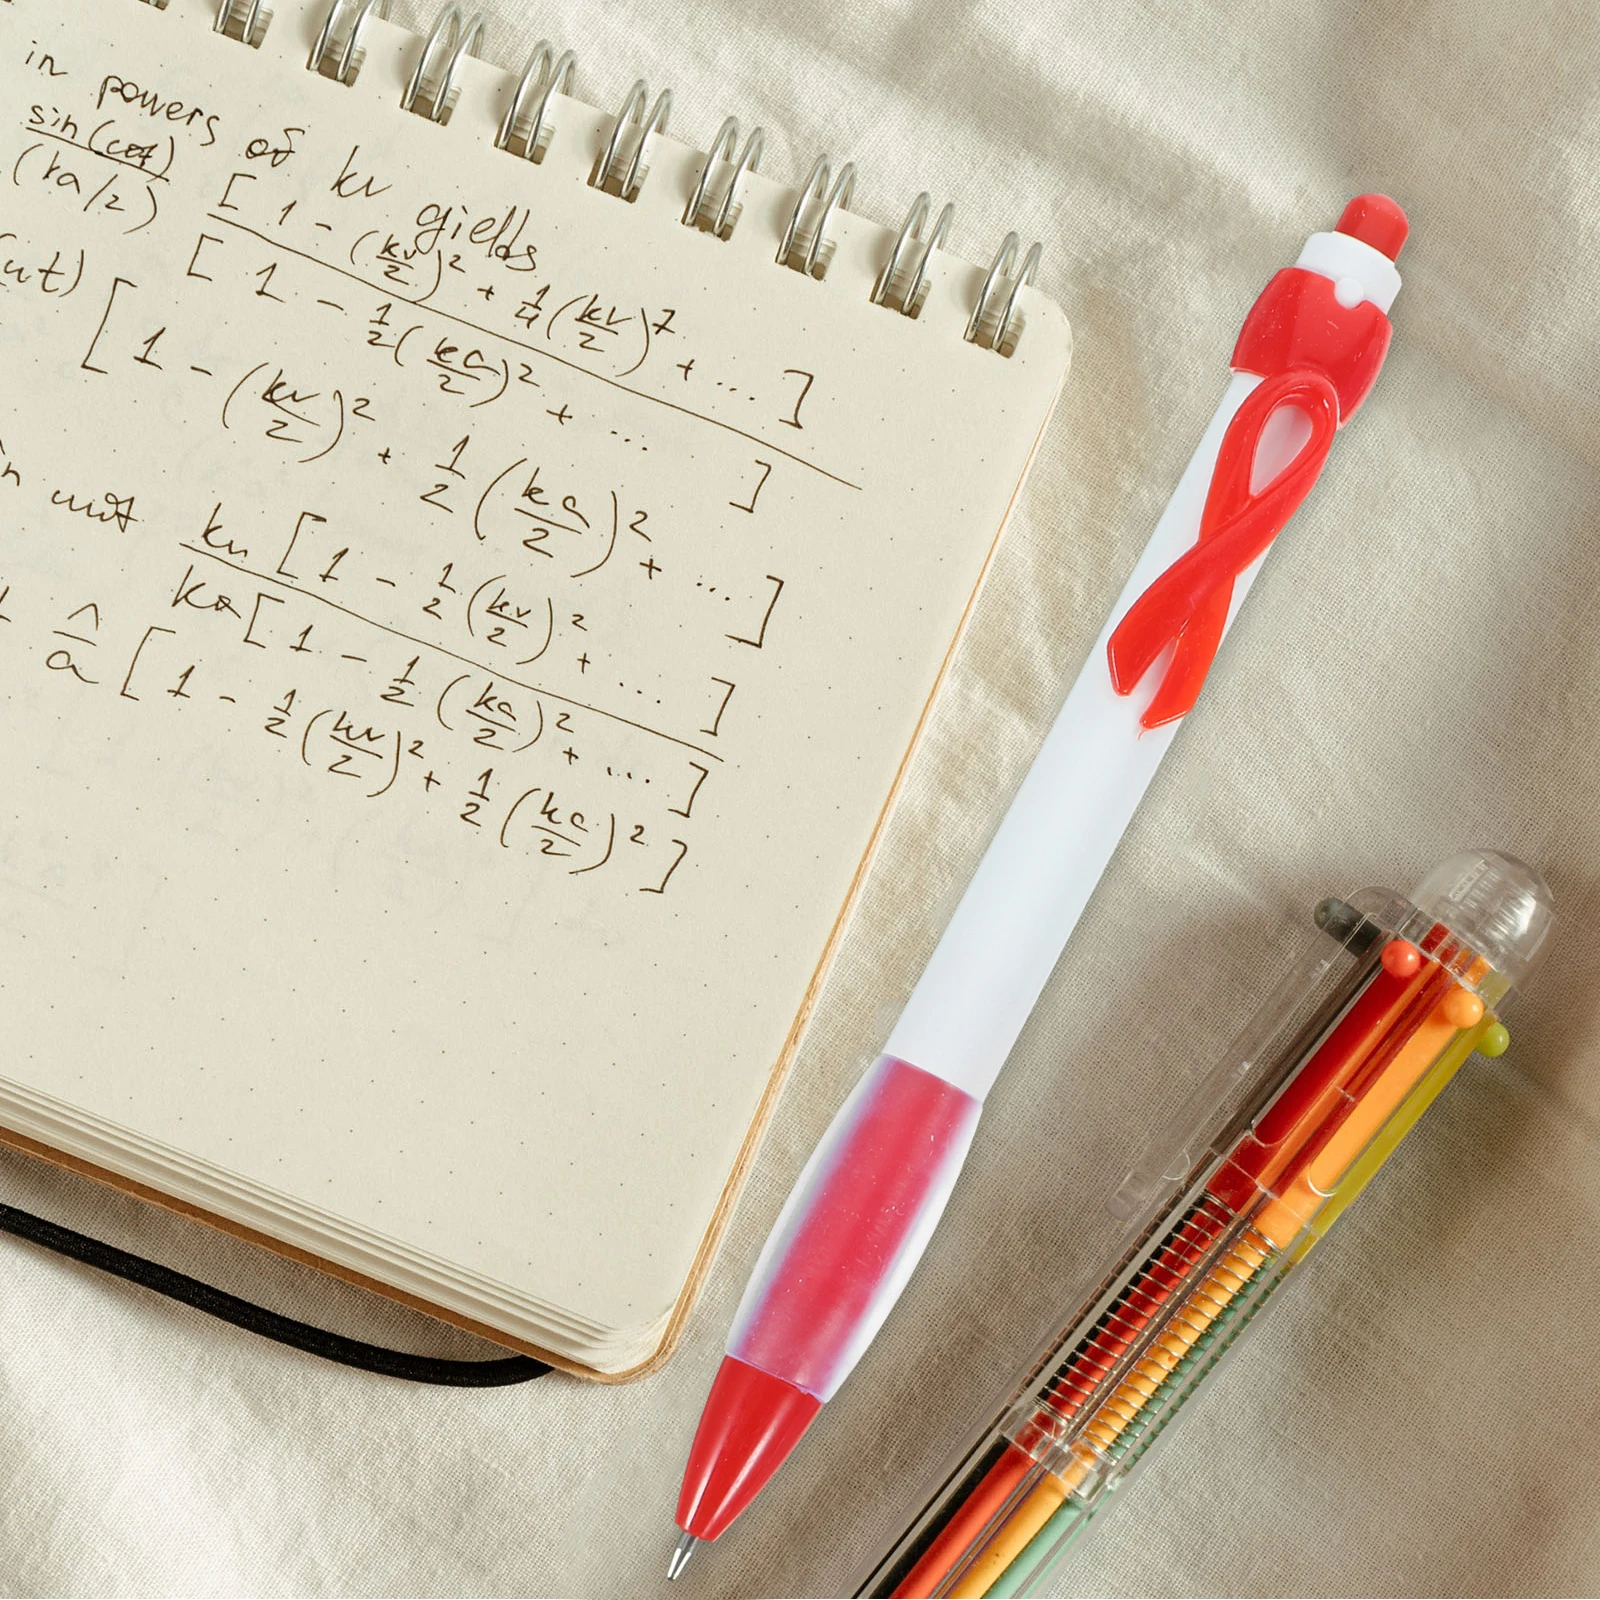 in powers of kv gields
sin(cot) / (ka/2) [1 - (kv/2)² + 1/4(kv/2)⁷ + ...] / [1 - 1/2(ka/2)² + ...]
ut) [1 - (kv/2)² + 1/2(ka/2)² + ...]
n wt kv[1 - 1/2(kv/2)² + ...] / ka[1 - 1/2(ka/2)² + ...]
^/a [1 - 1/2(kv/2)² + 1/2(ka/2)²]